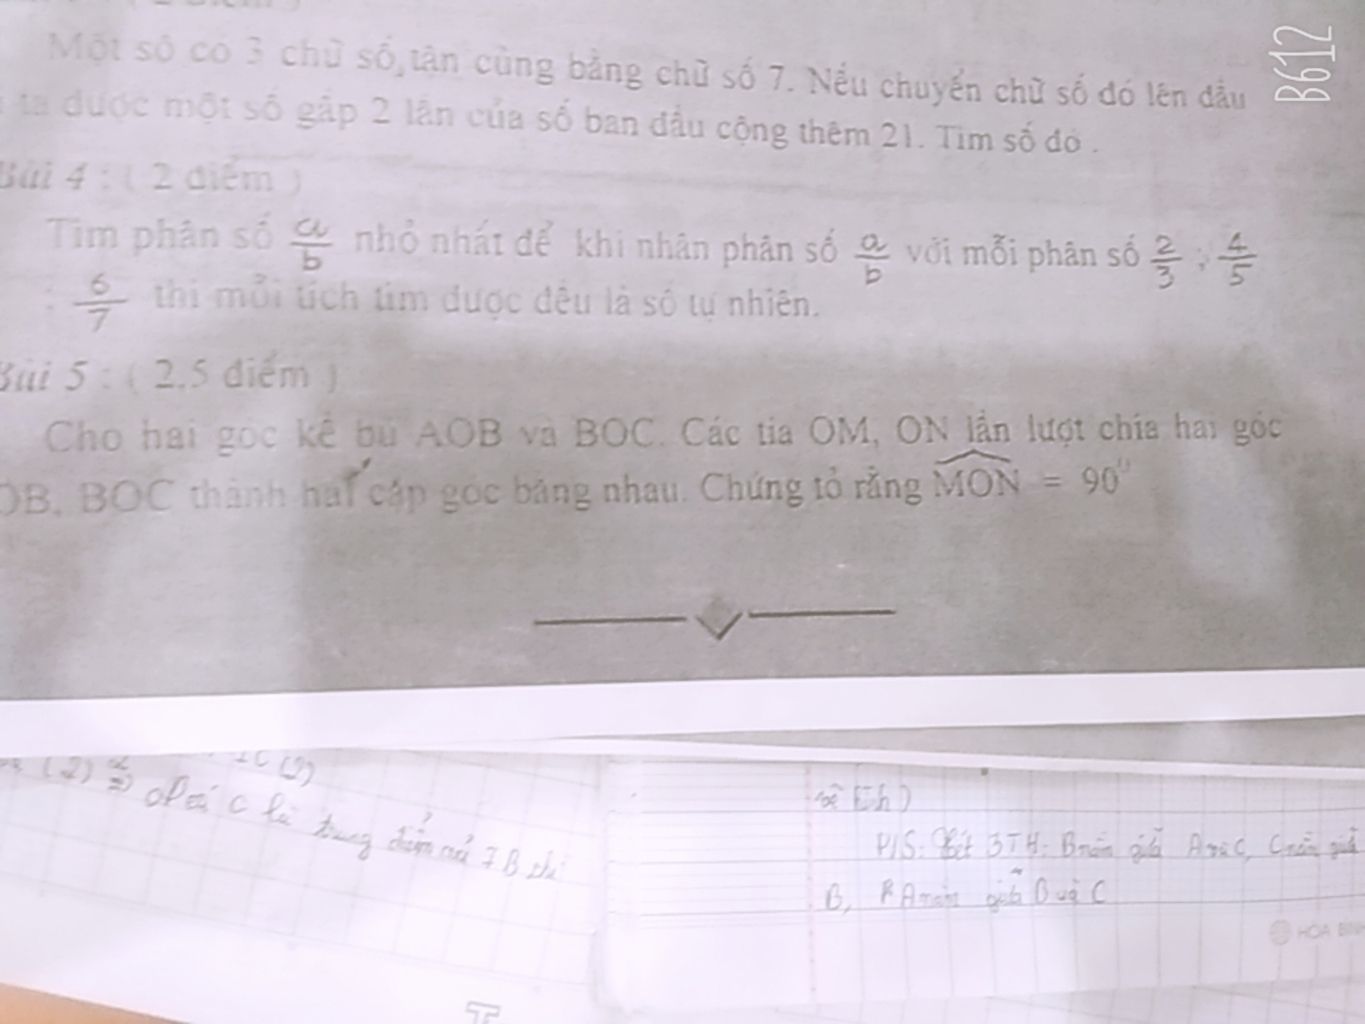 Một số có 3 chữ số, tân cùng bằng chữ số 7. Nếu chuyển chữ số đó lên đầu
ta được một số gấp 2 lần của số ban đầu cộng thêm 21. Tìm số đó .
Bài 4 : ( 2 điểm )
Tìm phân số a/b nhỏ nhất để khi nhân phân số a/b với mỗi phân số 2/3 ; 4/5
; 6/7 thì mỗi tích tìm được đều là số tự nhiên.
Bài 5 : ( 2,5 điểm )
Cho hai góc kề bù AOB và BOC. Các tia OM, ON lần lượt chia hai góc
OB, BOC thành hai cặp góc bằng nhau. Chứng tỏ rằng MON = 90°
B612
(2)
C là trung điểm của B thì
P/S: 3TH: B nằm giữa A và C, C nằm giữa
B, A nằm giữa B và C
HÒA BÌNH